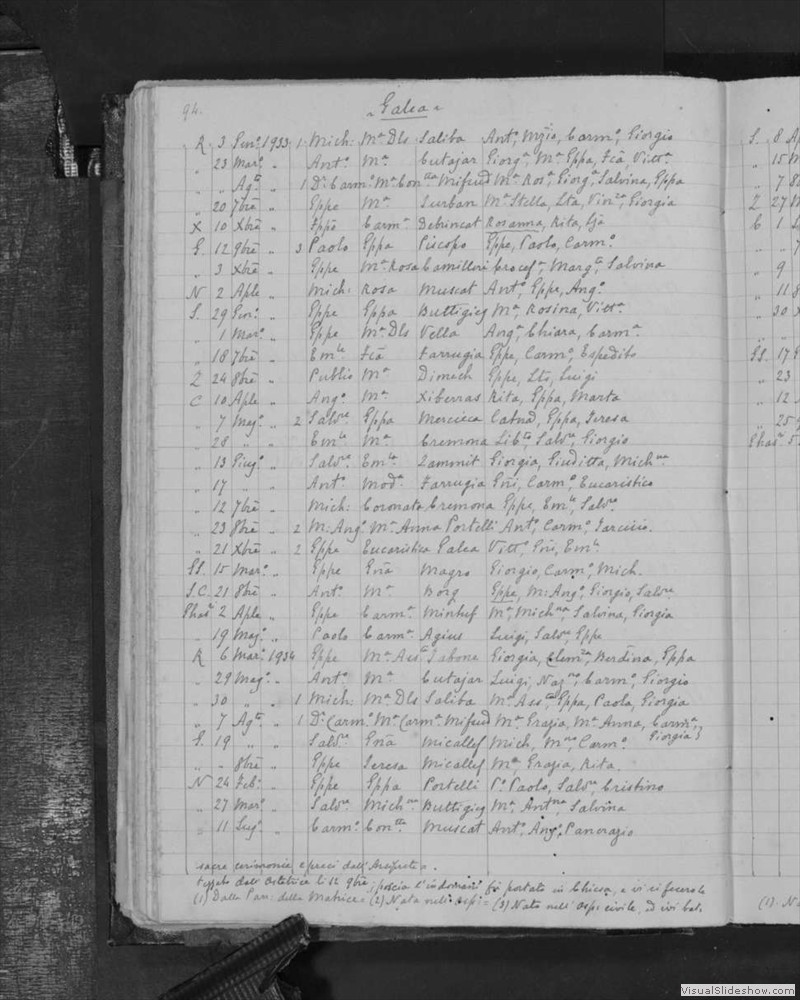 94.
„Galea"
R 3 Genº 1933 1 Mich: Mª Dls Saliba Antº, Mzio, Carmº, Giorgio
„ 23 Marº „ Antº Mª Cutajar Giorgª, Mª Gppa, Fcã, Vittª
„ „ Agto „ 1 Dr Carmº Mª Contta Mifsud Mª Rosª, Giorgª, Salvina, Gppa
„ 20 7bre „ Gppe Mª Zurban Mª Stella, Lta, Vinza, Giorgia
X 10 Xbre „ Gppe Carmª Debrincat Rosanna, Rita,
G. 12 9bre „ 3 Paolo Gppa Piscopo Gppe, Paolo, Carmº
„ 3 Xbre „ Gppe Mª Rosa Camilleri Crocefª, Margta, Salvina
N 2 Aple „ Mich: Rosa Muscat Antº, Gppe, Angº
S. 29 Genº „ Gppe Gppa Buttigieg Mª, Rosina, Vittª
„ 1 Marº „ Gppe Mª Dls Vella Angª, Chiara, Carmª
„ 18 7bre „ Emle Fcã Farrugia Gppe, Carmº, Espedito
Z 24 8bre „ Publio Mª Dimech Gppe, Lto, Luigi
C 10 Aple „ Angº Mª Xiberras Rita, Gppa, Marta
„ 7 Magº „ 2 Salvre Gppa Mercieca Catna, Gppa, Teresa
„ 28 „ „ Emle Mª Cremona Libto, Salvre, Giorgio
„ 13 Giugº „ Salvre Emla Zammit Giorgia, Giuditta, Michna
„ 17 „ Antº Modª Farrugia Gni, Carmº, Eucaristico
„ 12 7bre „ Mich: Coronata Cremona Gppe, Emle, Salvre
„ 23 8bre „ 2 M: Angº Mª Anna Portelli Antº, Carmº, Tarcisio.
„ 21 Xbre „ 2 Gppe Eucaristica Galea Vittº, Gni, Emle
SS. 15 Marº „ Gppe Gnã Magro Giorgio, Carmº, Mich.
S.C. 21 8bre „ Antº Mª Borg Gppe, M: Angº, Giorgio, Salvre
Ghasri 2 Aple „ Gppe Carmª Mintuf Mª, Michna, Salvina, Giorgia
„ 19 Magº „ Paolo Carmª Agius Luigi, Salvre, Gppe
R 6 Marº 1934 Gppe Mª Assta Tabone Giorgia, Clemza, Berdina, Gppa
„ 29 Magº „ Antº Mª Cutajar Luigi, Nazno, Carmº, Giorgio
„ 30 „ „ 1 Mich: Mª Dls Saliba Mª Assta, Gppa, Paola, Giorgia
„ 7 Agto „ 1 Dr Carmº Mª Carmª Mifsud Mª Grazia, Mª Anna, Carmª, Giorgia
G. 19 „ „ Salvre Gnã Micallef Mich, Mno, Carmº
„ – 8bre „ Gppe Teresa Micallef Mª Grazia, Rita.
N 24 Febº „ Gppe Gppa Portelli P. Paolo, Salvre, Cristino
„ 27 Marº „ Salvre Michna Buttigieg Mª Antna, Salvina
„ 11 Lugº „ Carmº Contta Muscat Antº, Angº, Pancrazio
sacre cerimonie e preci dall'Arciprete.
tezzata dall' Ostetrica li 12 9bre, poscia l'indomani fù portata in Chiesa, e vi si fecero le
(1) Dalla Parr: della Matrice = (2) Nata nell' Ospi = (3) Nato nell' Ospi civile, ed ivi bat.
S. 8 A
„ 15 M
„ 7
Z 27
C 1
„ „
„ 9
„ 11
„ 30 X
SS. 17
„ 23
„ 12
„ 25
Ghasri 5
(1). Na
VisualSlideshow.com